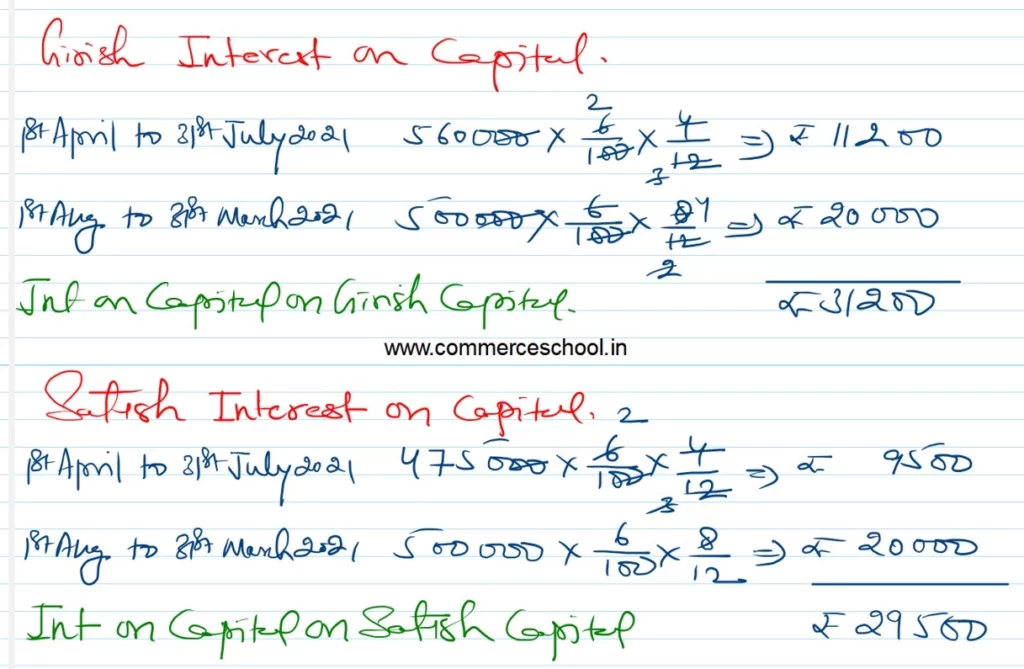 Girish Interest on Capital.
1st April to 31st July 2021 560000 × 6/100 × 4/12 ⇒ ₹ 11200
2
3
1st Aug to 31st March 2021 500000 × 6/100 × 84/12 ⇒ ₹ 20000
2
Int on Capital on Girish Capital. ₹ 31200
www.commerceschool.in
Satish Interest on Capital.
2
1st April to 31st July 2021 475000 × 6/100 × 4/12 ⇒ ₹ 9500
3
1st Aug to 31st March 2021 500000 × 6/100 × 8/12 ⇒ ₹ 20000
Int on Capital on Satish Capital ₹ 29500